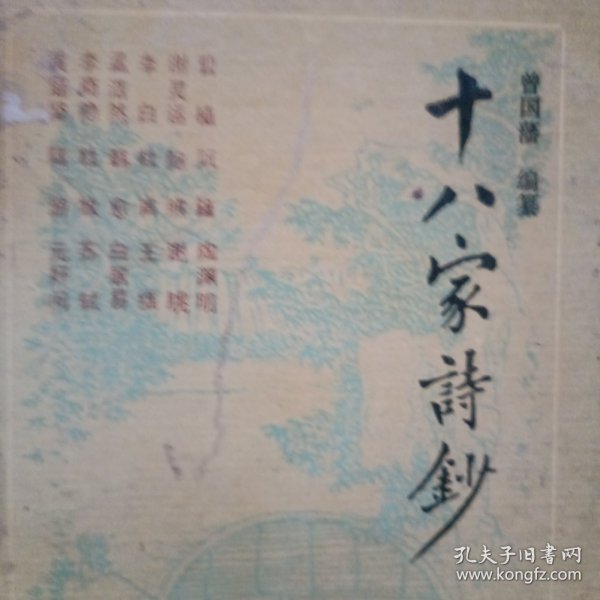 曾国藩 编纂
十八家詩鈔
曹植 阮籍 陶渊明
谢灵运 鲍照 谢朓
李白 杜甫 王维
孟浩然 韩愈 白居易
李商隐 杜牧 苏轼
黄庭坚 陆游 元好问
孔夫子旧书网
www.kongfz.com